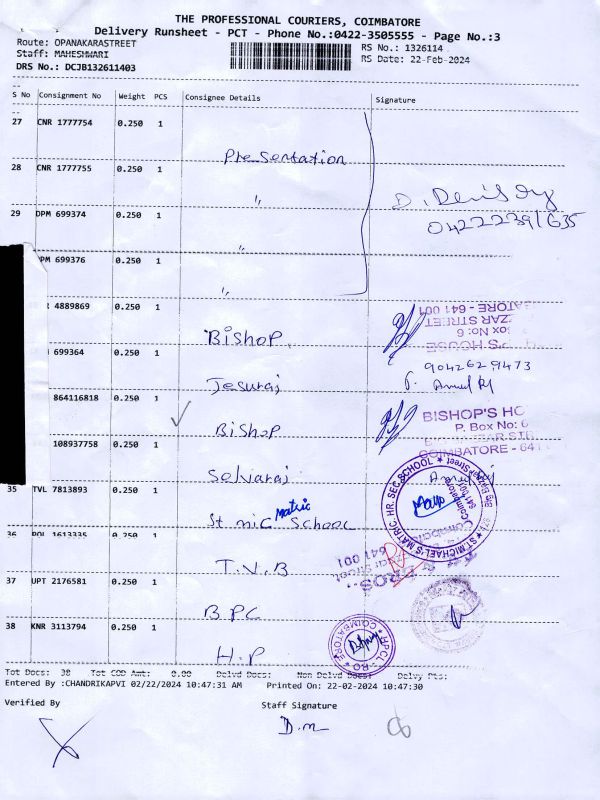 THE PROFESSIONAL COURIERS, COIMBATORE
Delivery Runsheet - PCT - Phone No.:0422-3505555 - Page No.:3
Route: OPANAKARASTREET
RS No.: 1326114
Staff: MAHESHWARI
RS Date: 22-Feb-2024
DRS No.: DCJB132611403
S No Consignment No Weight PCS Consignee Details Signature
27 CNR 1777754 0.250 1
Presentation
28 CNR 1777755 0.250 1
"
D.
0422239/635
29 DPM 699374 0.250 1
"
PM 699376 0.250 1
"
4889869 0.250 1
Bishop
ATORE - 641 001
ZAR STREET
ox No: 6
'S HOUSE
699364 0.250 1
9042629473
Jesuraj
864116818 0.250 1
Bishop
BISHOP'S HO
P. Box No: 6
COIMBATORE - 641
108937758 0.250 1
Selvaraj
35 TVL 7813893 0.250 1
St. mic Matric School
ST.MICHAEL'S MATRIC HR. SEC.SCHOOL
Coimbatore
36 1613335 0.250 1
T.V.B
641 001
ROS.
37 UPT 2176581 0.250 1
BPC
38 KNR 3113794 0.250 1
H.P
COIMBATORE HPCL RO
Tot Docs: 38 Tot COD Amt: 0.00 Delvd Docs: Non Delvd Docs: Delvy Pts:
Entered By :CHANDRIKAPVI 02/22/2024 10:47:31 AM Printed On: 22-02-2024 10:47:30
Verified By Staff Signature
D.m